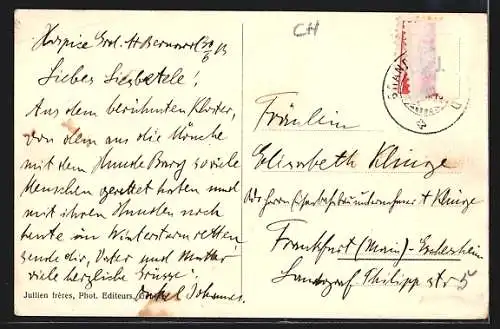 Hospice Grd. St Bernard 20/6 13
Liebes Liesbetele!
Aus dem berühmten Kloster,
von dem aus die Mönche
mit dem Hunde Barry so viele
Menschen gerettet haben und
mit ihren Hunden noch
heute im Wintersturm retten
sende dir, Vater und Mutter
viele herzliche Grüsse!
Onkel Johannes
Jullien frères, Phot. Editeurs
CH
Fräulein
Elisabeth Klinge
Adr Herrn Eisenbahnbauunternehmer Klinge
Frankfurt (Main)-Eschersheim
Landgraf Philippstr 5